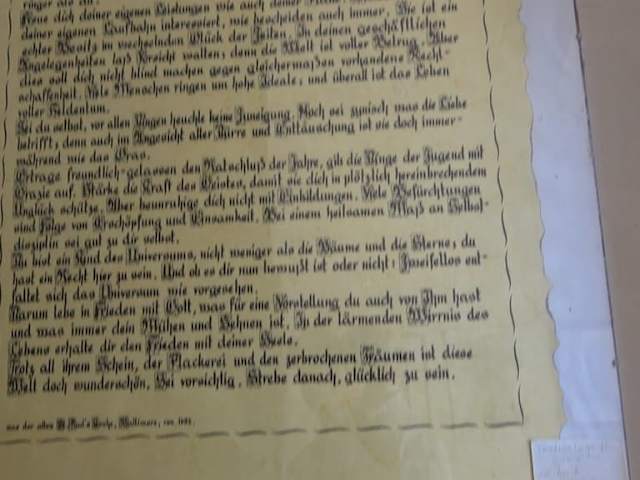 Freue dich deiner eigenen Leistungen wie auch deiner
deiner eigenen Laufbahn interessiert, wie bescheiden auch immer. Sie ist ein
echter Besitz im wechselnden Glück der Zeiten. In deinen geschäftlichen
Angelegenheiten laß Vorsicht walten; denn die Welt ist voller Betrug. Aber
dies soll dich nicht blind machen gegen gleichermaßen vorhandene Recht-
schaffenheit. Viele Menschen ringen um hohe Ideale; und überall ist das Leben
voller Heldentum.
Sei du selbst, vor allen Dingen heuchle keine Zuneigung. Noch sei zynisch was die Liebe
betrifft; denn auch im Angesicht aller Dürre und Enttäuschung ist sie doch immer-
während wie das Gras.
Ertrage freundlich-gelassen den Ratschluß der Jahre, gib die Dinge der Jugend mit
Grazie auf. Stärke die Kraft des Geistes, damit sie dich in plötzlich hereinbrechendem
Unglück schütze. Aber beunruhige dich nicht mit Einbildungen. Viele Befürchtungen
sind Folge von Erschöpfung und Einsamkeit. Bei einem heilsamen Maß an Selbst-
disziplin sei gut zu dir selbst.
Du bist ein Kind des Universums, nicht weniger als die Bäume und die Sterne; du
hast ein Recht hier zu sein. Und ob es dir nun bewußt ist oder nicht: Zweifellos ent-
faltet sich das Universum wie vorgesehen.
Darum lebe in Frieden mit Gott, was für eine Vorstellung du auch von Ihm hast
und was immer dein Mühen und Sehnen ist. In der lärmenden Wirrnis des
Lebens erhalte dir den Frieden mit deiner Seele.
Trotz all ihrem Schein, der Plackerei und den zerbrochenen Träumen ist diese
Welt doch wunderschön. Sei vorsichtig. Strebe danach, glücklich zu sein.
aus der alten St. Paul's Kirche, Baltimore, von 1692.